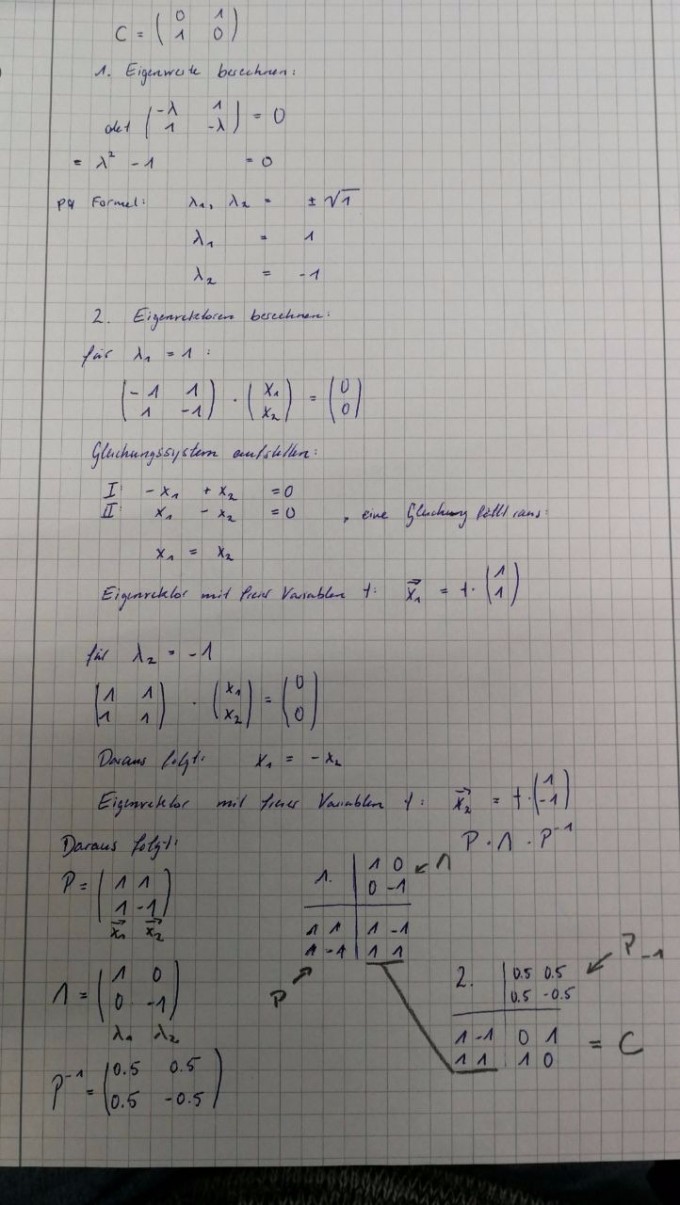 C = ( 0 1
1 0 )
1. Eigenwerte berechnen:
det ( -λ 1
1 -λ ) = 0
= λ² - 1 = 0
pq Formel: λ₁, λ₂ = ± √1
λ₁ = 1
λ₂ = -1
2. Eigenvektoren berechnen:
für λ₁ = 1 :
( -1 1
1 -1 ) · ( x₁
x₂ ) = ( 0
0 )
Gleichungssystem aufstellen:
I: -x₁ + x₂ = 0
II: x₁ - x₂ = 0 , eine Gleichung fällt raus:
x₁ = x₂
Eigenvektor mit freier Variablen t: x₁ = t · ( 1
1 )
für λ₂ = -1
( 1 1
1 1 ) · ( x₁
x₂ ) = ( 0
0 )
Daraus folgt: x₁ = -x₂
Eigenvektor mit freier Variablen t: x₂ = t · ( 1
-1 )
Daraus folgt:
P · Λ · P⁻¹
P = ( 1 1
1 -1 )
x₁ x₂
1. | 1 0 ← Λ
0 -1
1 1 | 1 -1
1 -1 | 1 1
P
Λ = ( 1 0
0 -1 )
λ₁ λ₂
2. | 0.5 0.5 ← P₋₁
0.5 -0.5
1 -1 | 0 1
1 1 | 1 0 = C
P⁻¹ = ( 0.5 0.5
0.5 -0.5 )